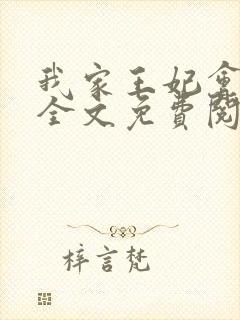 我家王妃會
全文免費閱
梓言梵